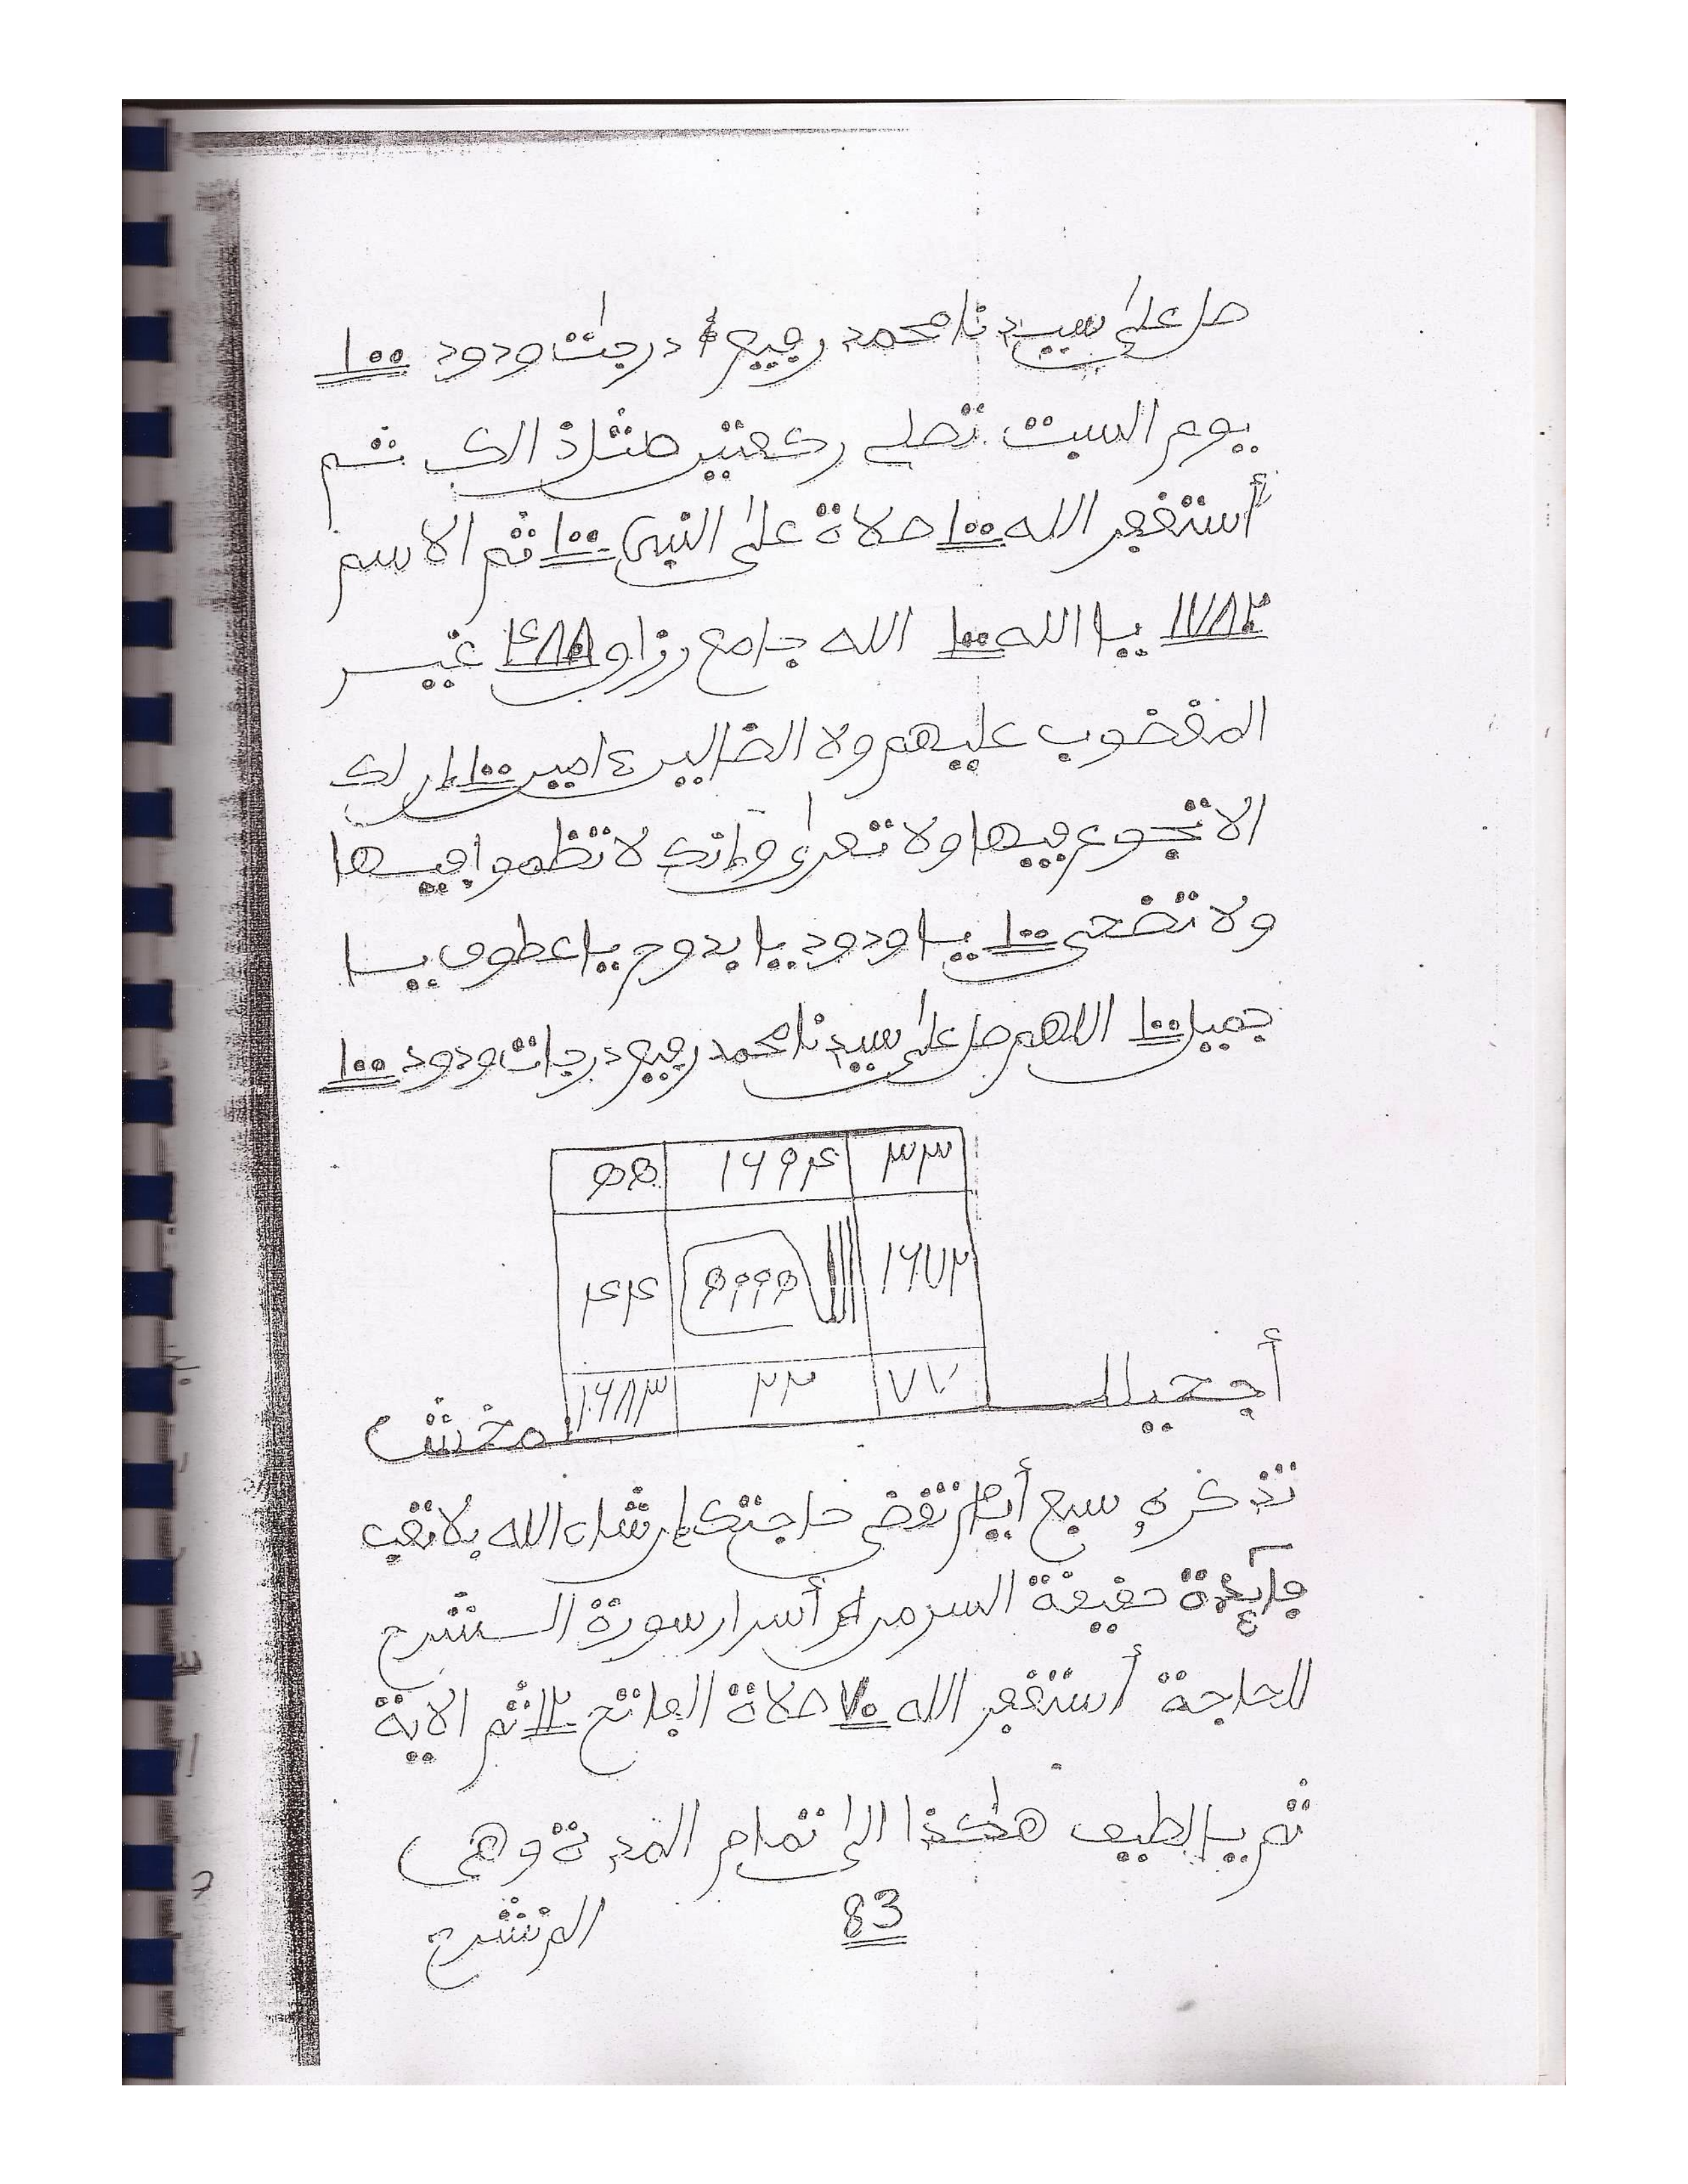 صل على سيدنا محمد رفيع درجات ودود ١٠٠
يوم السبت تصلي ركعتين مثل ذالك ثم
أستغفر الله ١٠٠ صلاة على النبي ١٠٠ ثم الاسم
١٧٨٢ يا الله ١٠٠ الله جامع رزاق ٤٨٨ غير
المغضوب عليهم ولا الضالين ءامين ١٠٠ إن لك
الا تجوع فيها ولا تعرى وإنك لا تظموا فيها
ولا تضحى ١٠٠ يا ودود يا بدوح يا عطوف يا
جميل ١٠٠ اللهم صل على سيدنا محمد رفيع درجات ودود ١٠٠
٣٣ ١٦٩٤ ٥٥
١٦٧٢ ٤٤
٧٧ ٢٢ ١٦٨٣
تذكره سبع أيام تقضى حاجتك إن شاء الله بلا تعب
فائدة حقيقة السر من أسرار سورة الشرح
للحاجة أستغفر الله ٧٠ صلاة الفاتح ١٢ ثم الاية
ثم يا لطيف هكذا الى تمام المدة وهي
83
الم نشرح